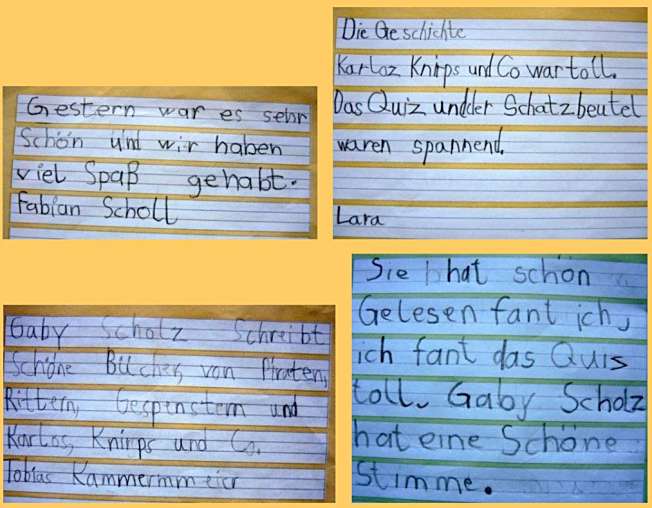 Gestern war es sehr
Schön und wir haben
viel Spaß gehabt.
Fabian Scholl
Die Geschichte
Karloz Knirps und Co war toll.
Das Quiz und der Schatzbeutel
waren spannend.
Lara
Gaby Scholz Schreibt
Schöne Bücher, von Piraten,
Rittern, Gespenstern und
Karlos, Knirps und Co.
Tobias Kammermmeier
Sie hat schön
Gelesen fant ich,
ich fant das Quis
toll. Gaby Scholz
hat eine Schöne
Stimme.